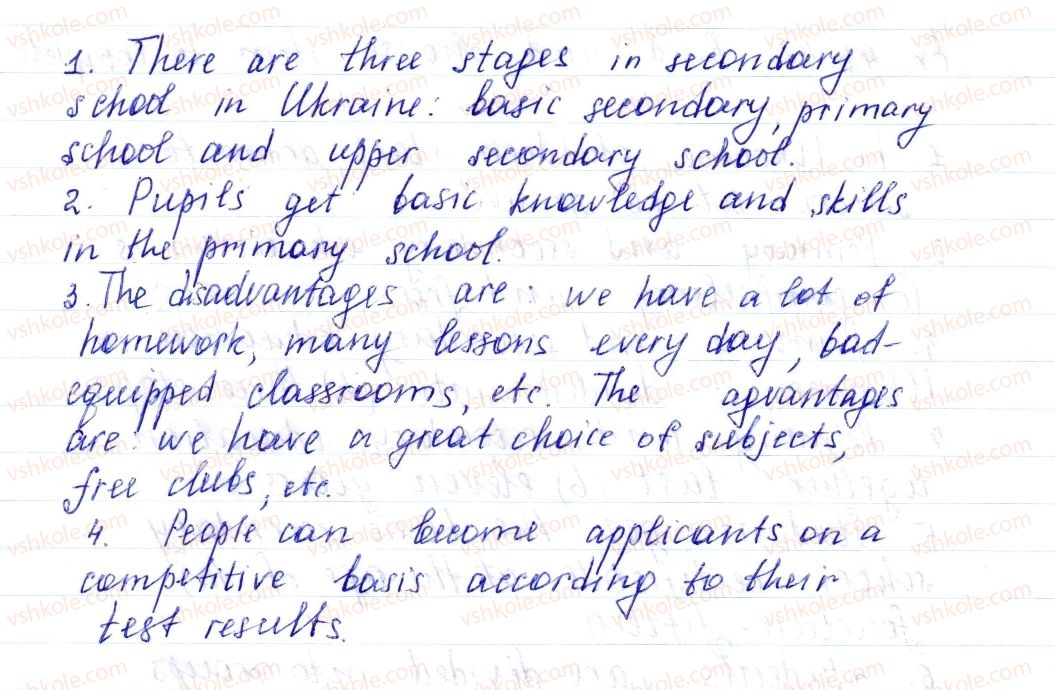 1. There are three stages in secondary
school in Ukraine: basic secondary, primary
school and upper secondary school.
2. Pupils get basic knowledge and skills
in the primary school.
3. The disadvantages are: we have a lot of
homework, many lessons every day, bad-
equipped classrooms, etc. The agvantages
are: we have a great choice of subjects,
free clubs, etc.
4. People can become applicants on a
competitive basis according to their
test results.